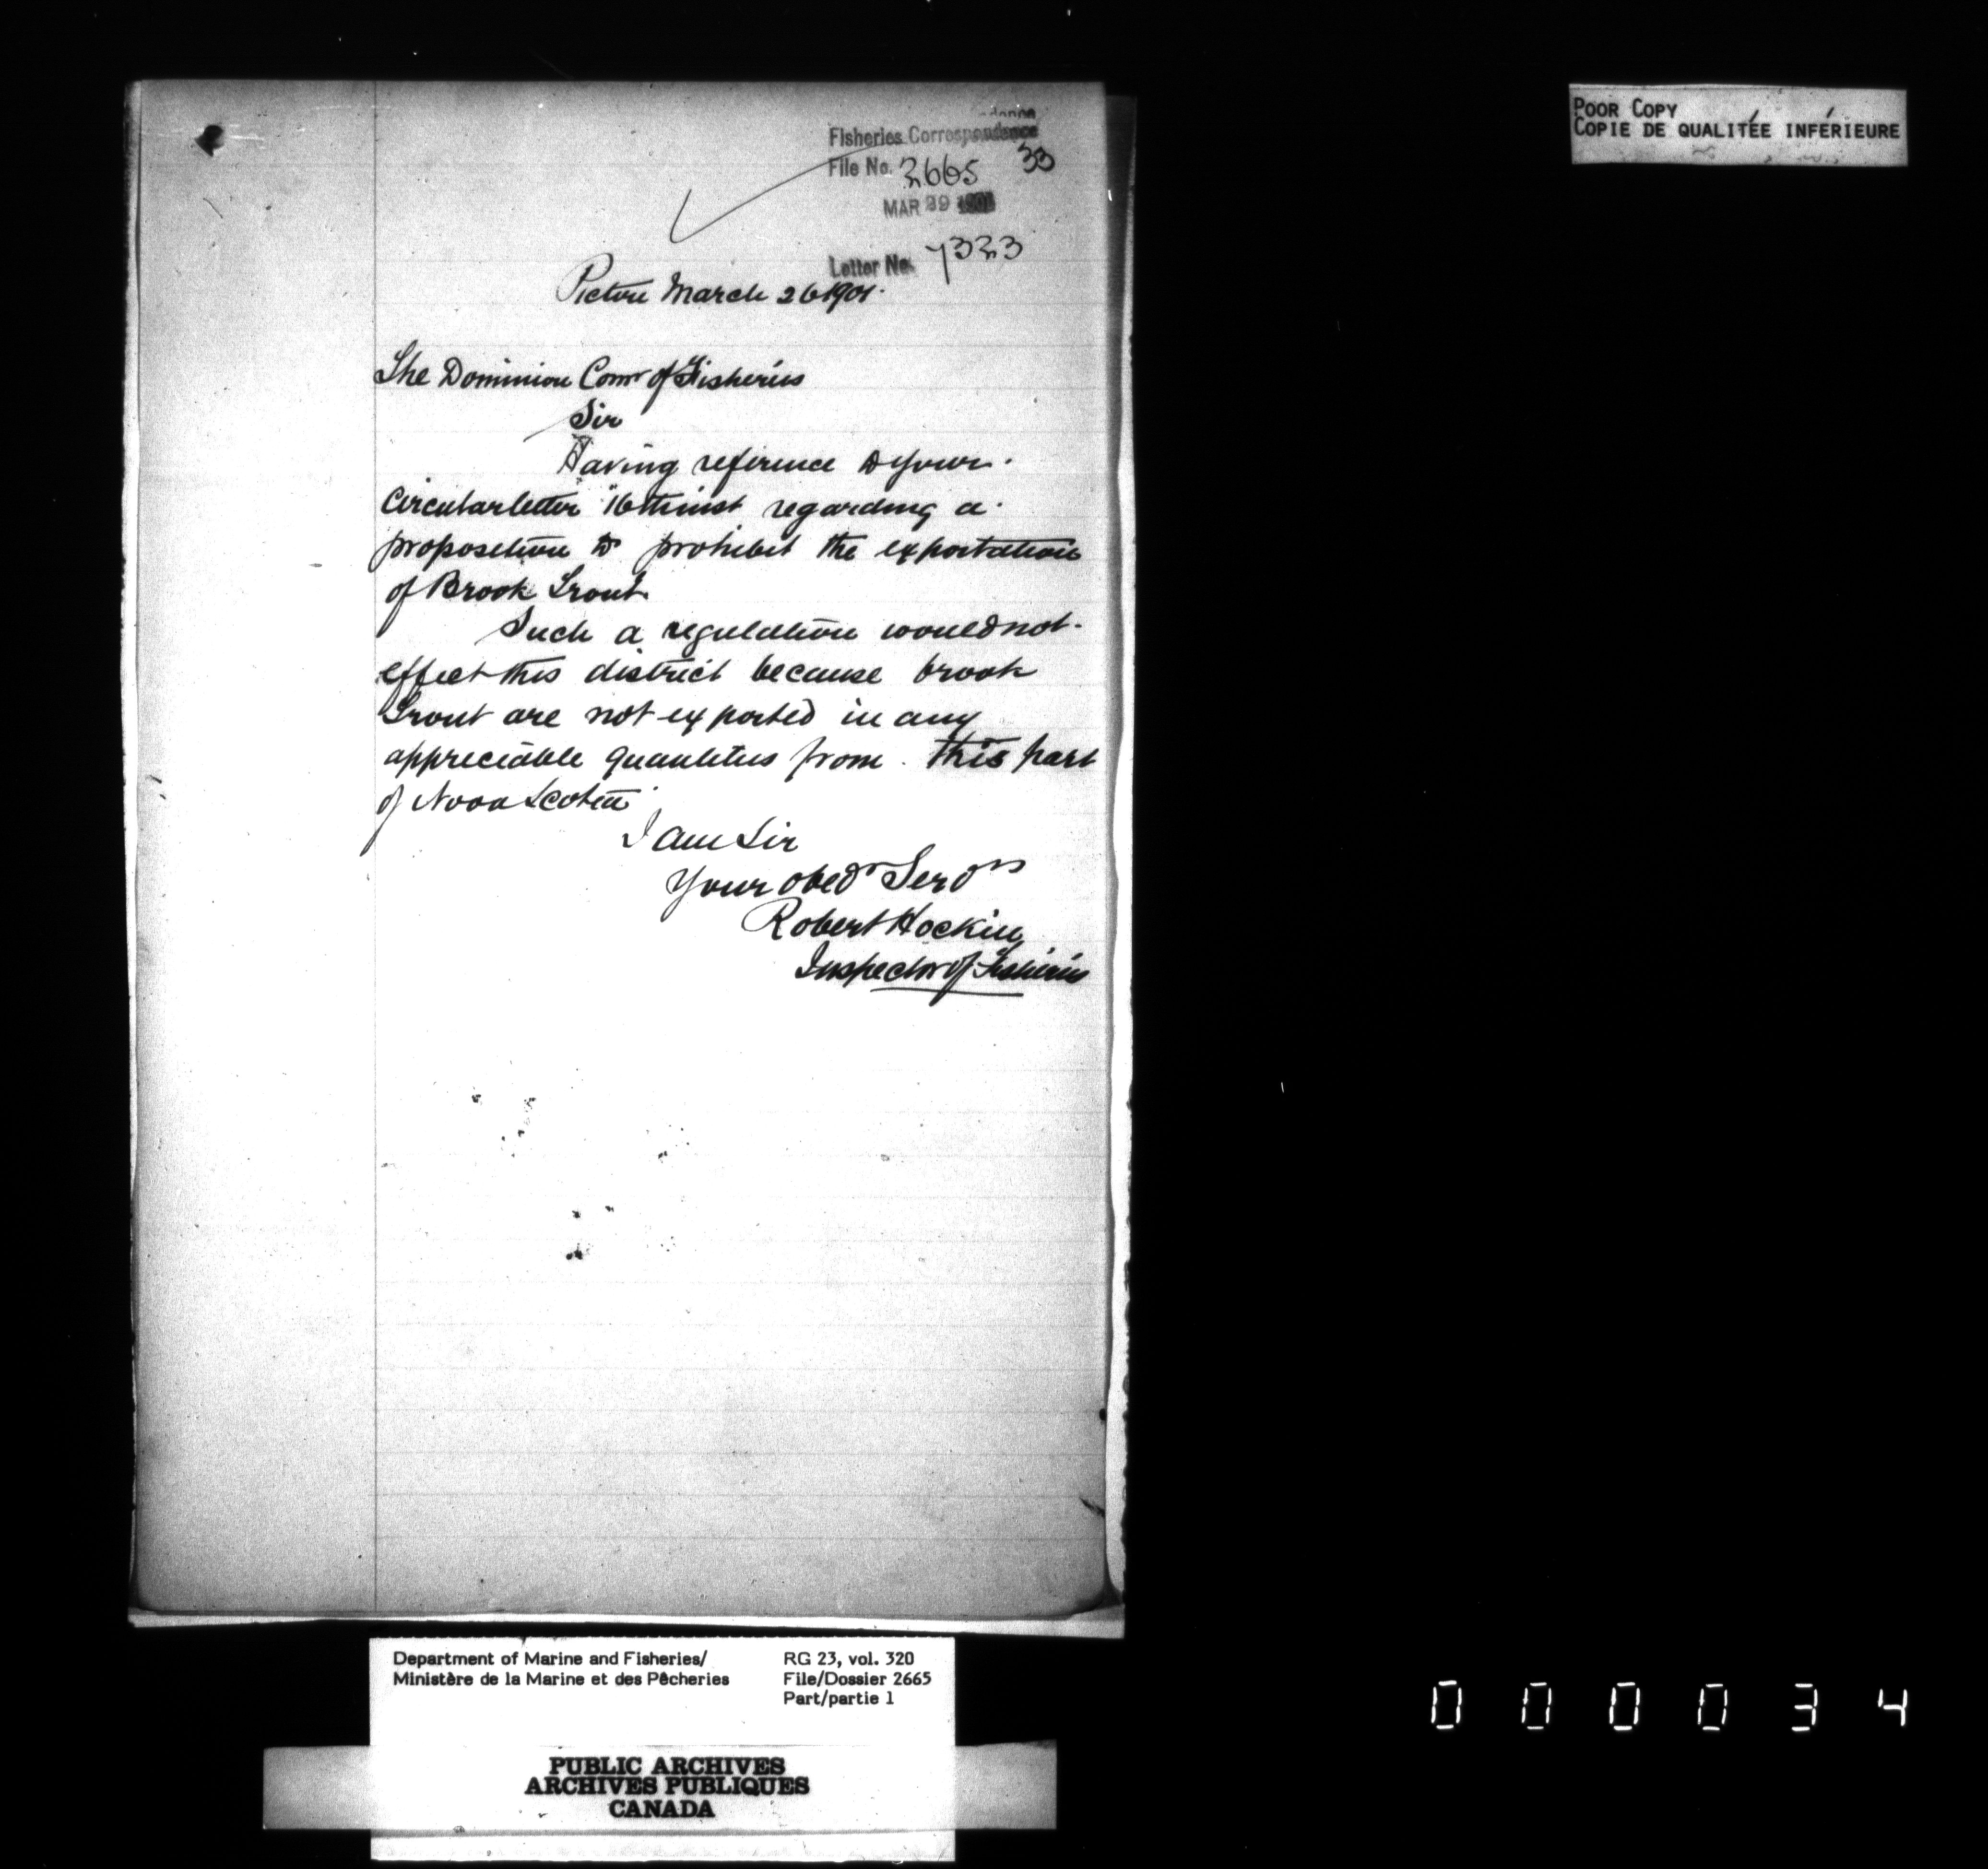 POOR COPY
COPIE DE QUALITÉE INFÉRIEURE
Fisheries Correspondence
File No. 2665 33
MAR 29 1901
Letter No. 7323
Pictou March 26 1901.
The Dominion Comr of Fisheries
Sir
Having reference to your
Circular letter 16th inst regarding a
proposition to prohibit the exportation
of Brook Trout.
Such a regulation would not
effect this district because brook
Trout are not exported in any
appreciable quantities from this part
of Nova Scotia
I am Sir
Your obedt Servt
Robert Hockin
Inspector of Fisheries
Department of Marine and Fisheries/
Ministère de la Marine et des Pêcheries
RG 23, vol. 320
File/Dossier 2665
Part/partie 1
PUBLIC ARCHIVES
ARCHIVES PUBLIQUES
CANADA
000034